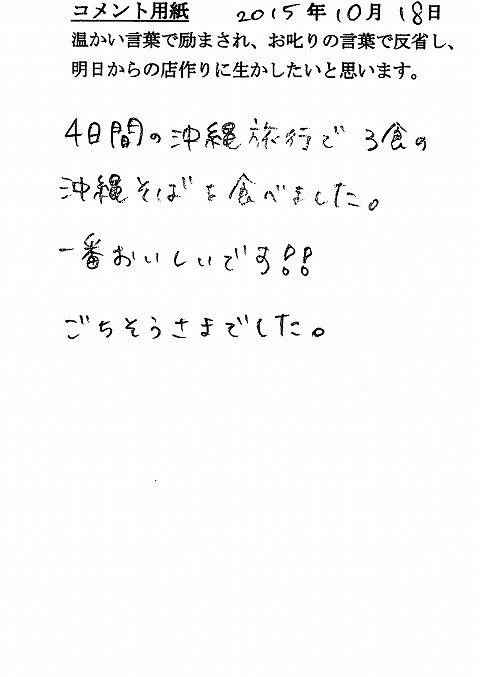 コメント用紙 2015年10月18日
温かい言葉で励まされ、お叱りの言葉で反省し、
明日からの店作りに生かしたいと思います。
4日間の沖縄旅行で 3食の
沖縄そばを食べました。
一番おいしいです!!
ごちそうさまでした。